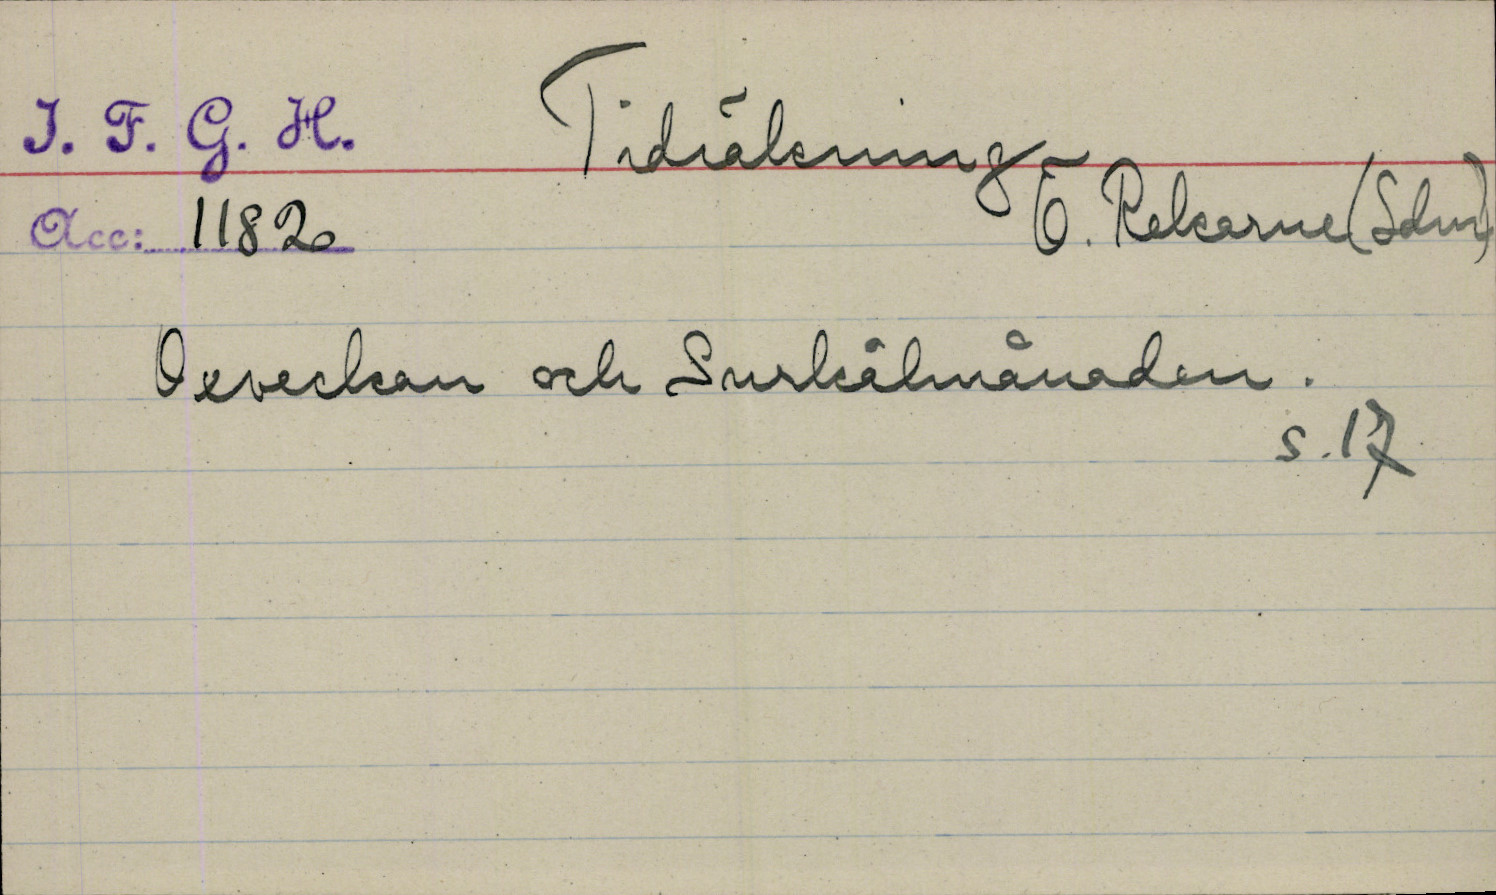 I. F. G. H.
Tidräkning
Acc: 1182
Ö. Rekarne (Sdm)
Oxveckan och Surkålmånaden.
s. 17